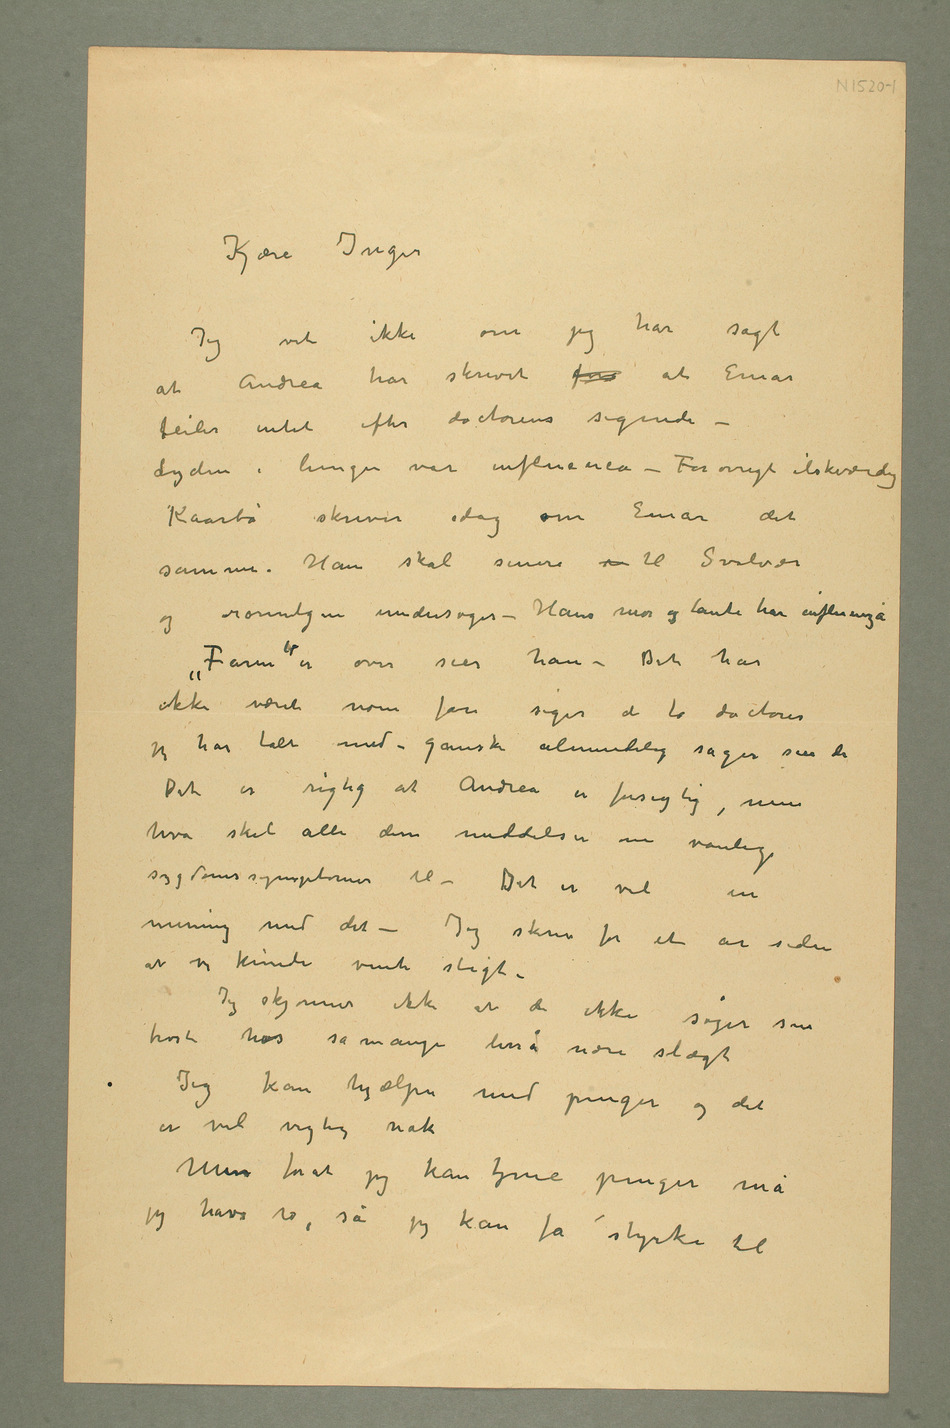 N1520-1
Kjære Inger
Jeg vet ikke om jeg har sagt
at Andrea har skrevet at Einar
feiler intet efter doctorens sigende –
Lyden i lungen var influenca – Forøvrigt elskværdig
Kaarbø skriver idag om Einar det
samme. Han skal senere til Svolvær
og røntgen undersøges – Hans mor og tante har influenza
„Faren“ er over sier han – Det har
ikke været noen fare siger de to doctorer
jeg har talt med – ganske almindelig sager sier de
Det er rigtig at Andrea er forsigtig, men
hva skal alle dem meddelser om vanlige
sygdomssymptomer til – Det er vel en
mening med det – Jeg skrev for et år siden
at vi kunde vente sligt –
Jeg skjønner ikke at de ikke søger sin
trøst hos så mange nære slægt
Jeg kan hjælpe med penger og det
er vel vigtig nok
Men forat jeg kan tjene penger må
jeg have ro, så jeg kan få styrke til